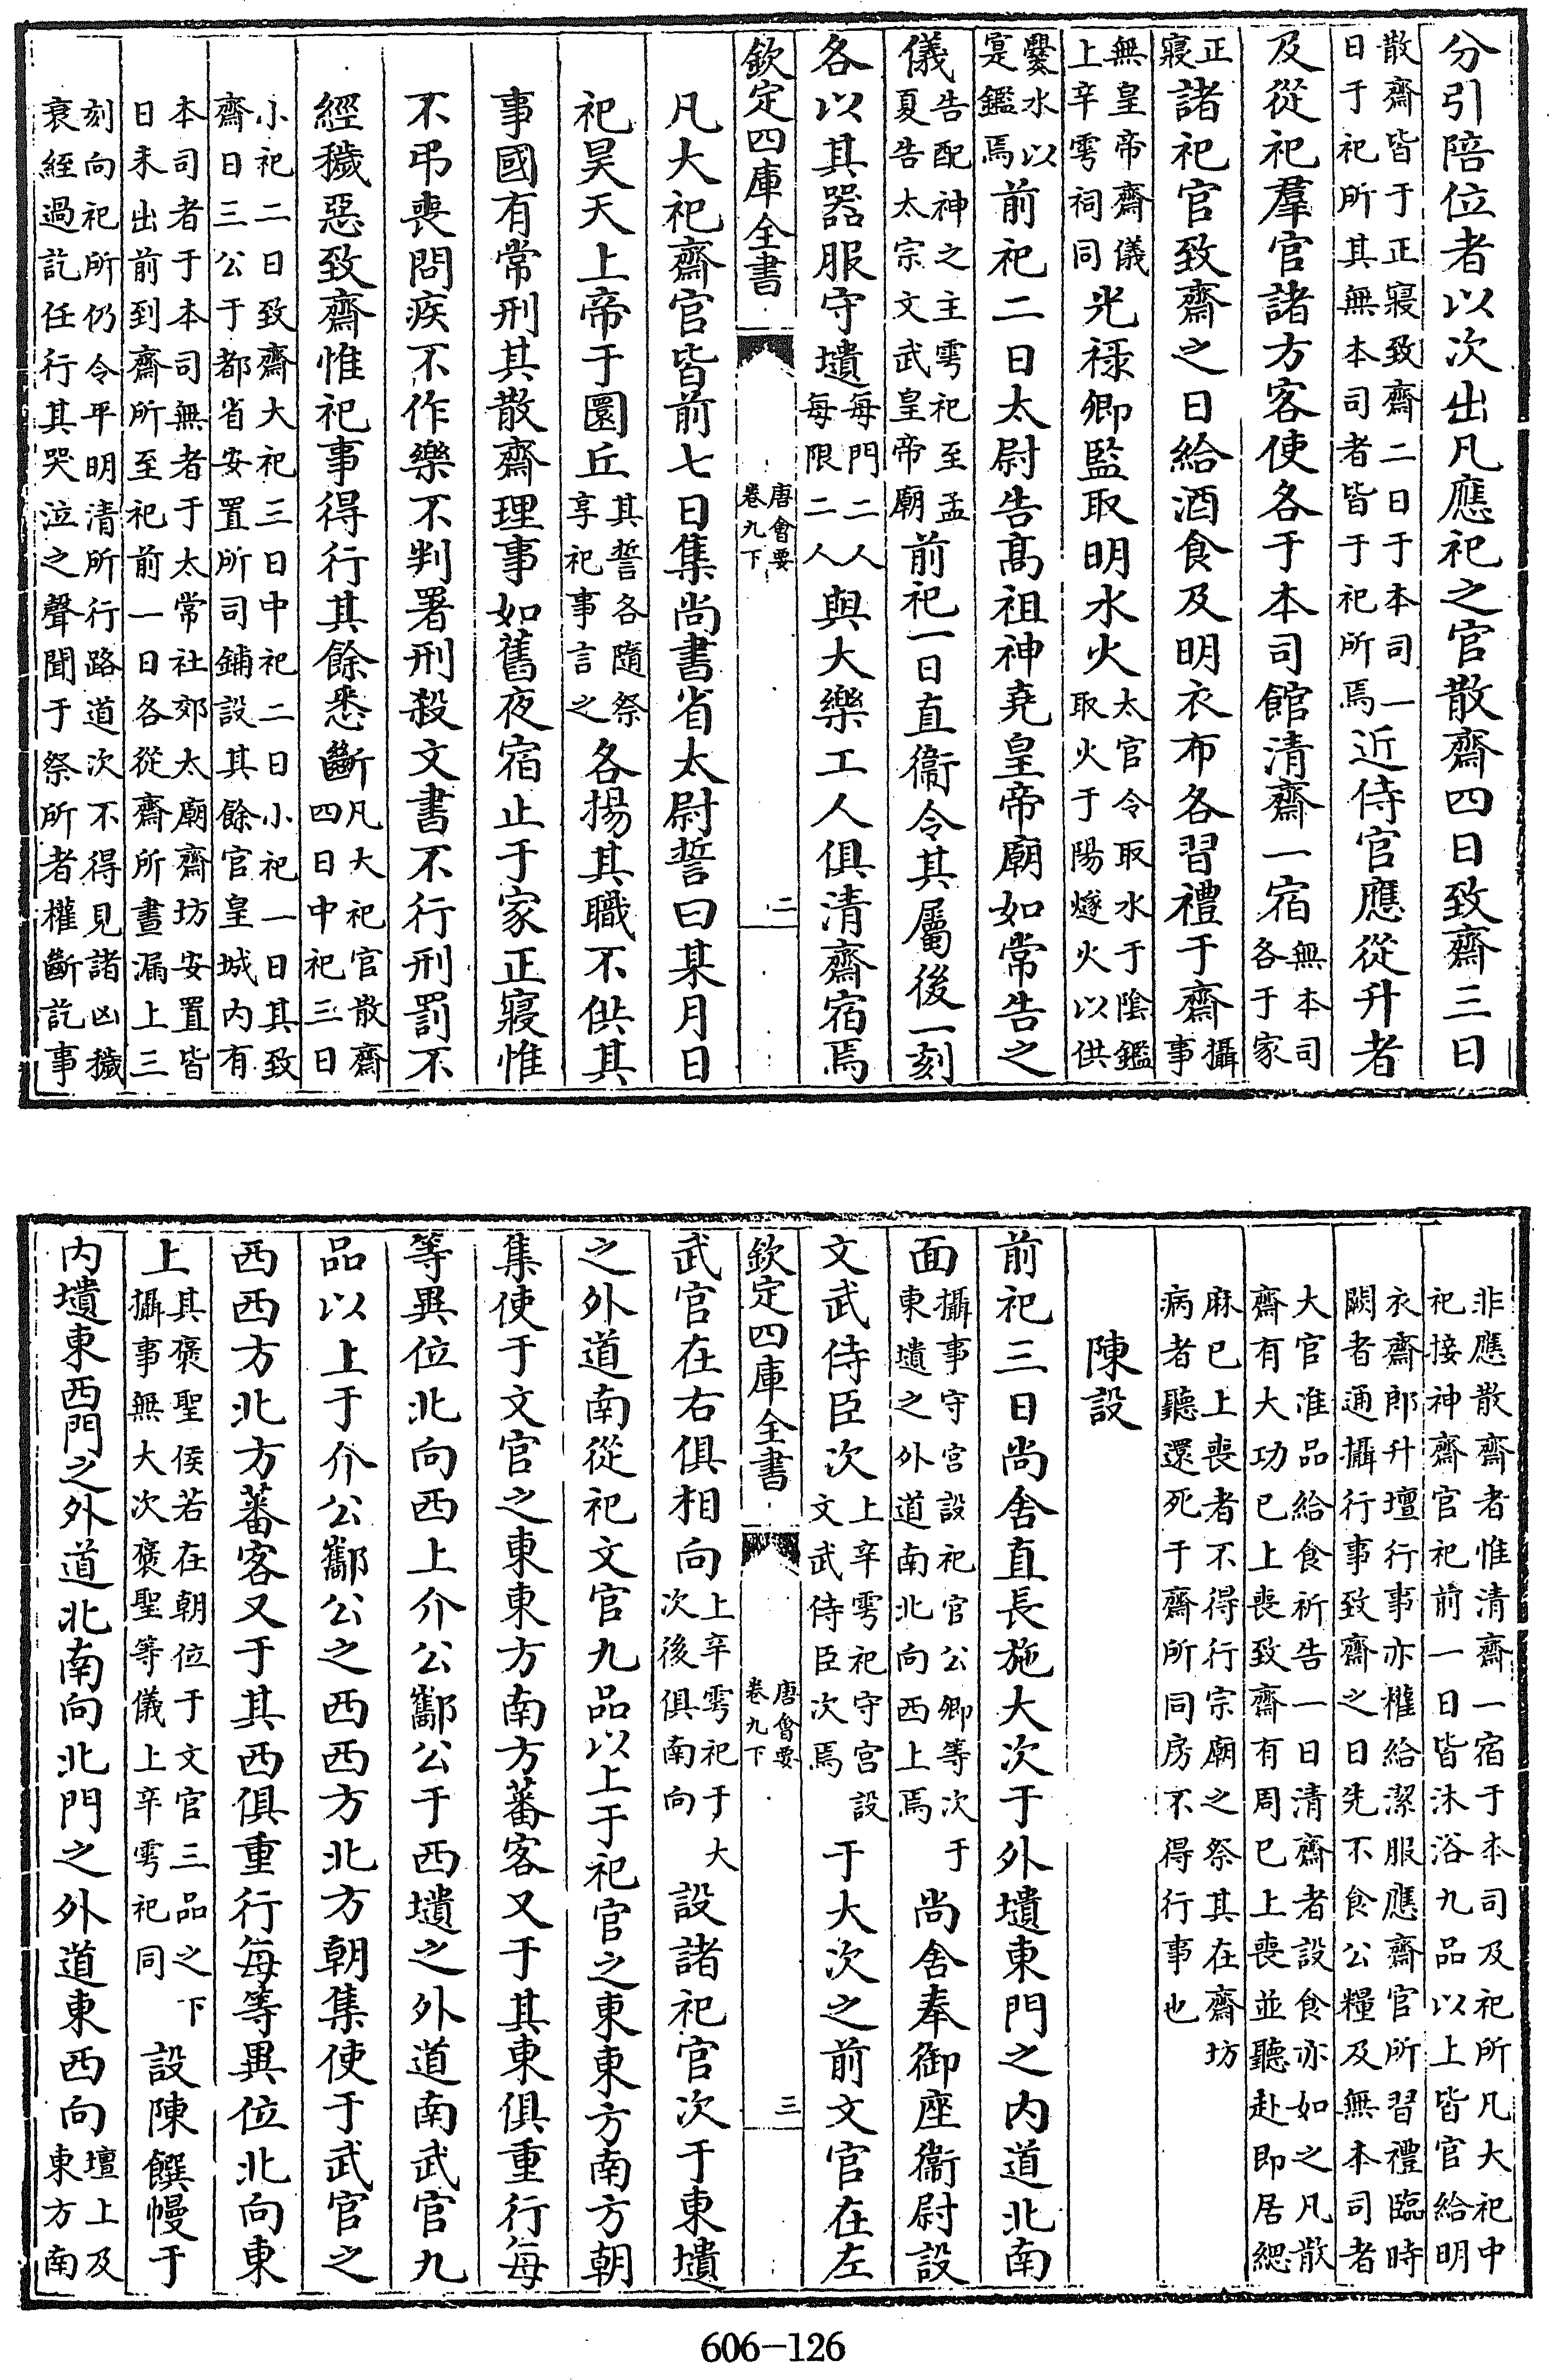 分引陪位者以次出凡應祀之官散齋四日致齋三日
散齋皆于正寢致齋二日于本司一
日于祀所其無本司者皆于祀所焉近侍官應從升者
及從祀羣官諸方客使各于本司館清齋一宿無本司
各于家
正
寢諸祀官致齋之日給酒食及明衣布各習禮于齋攝
事
無皇帝齋儀
上辛雩祠同光祿卿監取明水火太官令取水于陰鑑
取火于陽燧火以供
爨水以
寔鑑焉前祀二日太尉告髙祖神堯皇帝廟如常告之
儀告配神之主雩祀至孟
夏告太宗文武皇帝廟前祀一日直衞令其屬後一刻
各以其器服守壝每門二人
每限二人與大樂工人俱清齋宿焉
欽定四庫全書
唐會要
卷九下
二
凡大祀齋官皆前七日集尚書省太尉誓曰某月日
祀昊天上帝于圜丘其誓各隨祭
享祀事言之各揚其職不供其
事國有常刑其散齋理事如舊夜宿止于家正寢惟
不弔喪問疾不作樂不判署刑殺文書不行刑罰不
經穢惡致齋惟祀事得行其餘悉斷凡大祀官散齋
四日中祀三日
小祀二日致齋大祀三日中祀二日小祀一日其致
齋日三公于都省安置所司鋪設其餘官皇城內有
本司者于本司無者于太常社郊太廟齋坊安置皆
日未出前到齋所至祀前一日各從齋所晝漏上三
刻向祀所仍令平明清所行路道次不得見諸凶穢
衰絰過訖任行其哭泣之聲聞于祭所者權斷訖事
非應散齋者惟清齋一宿于本司及祀所凡大祀中
祀接神齋官祀前一日皆沐浴九品以上皆官給明
衣齋郎升壇行事亦權給潔服應齋官所習禮臨時
闕者通攝行事致齋之日先不食公糧及無本司者
大官准品給食祈告一日清齋者設食亦如之凡散
齋有大功已上喪致齋有周已上喪並聽赴即居緦
麻已上喪者不得行宗廟之祭其在齋坊
病者聽還死于齋所同房不得行事也
陳設
前祀三日尚舍直長施大次于外壝東門之內道北南
面攝事守宫設祀官公卿等次于
東壝之外道南北向西上焉尚舍奉御座衞尉設
文武侍臣次上辛雩祀守宫設
文武侍臣次焉于大次之前文官在左
欽定四庫全書
唐會要
卷九下
三
武官在右俱相向上辛雩祀于大
次後俱南向設諸祀官次于東壝
之外道南從祀文官九品以上于祀官之東東方南方朝
集使于文官之東東方南方蕃客又于其東俱重行每
等異位北向西上介公酅公于西壝之外道南武官九
品以上于介公酅公之西西方北方朝集使于武官之
西西方北方蕃客又于其西俱重行每等異位北向東
上其褒聖侯若在朝位于文官三品之下
攝事無大次褒聖等儀上辛雩祀同設陳饌幔于
內壝東西門之外道北南向北門之外道東西向壇上及
東方南
606-126